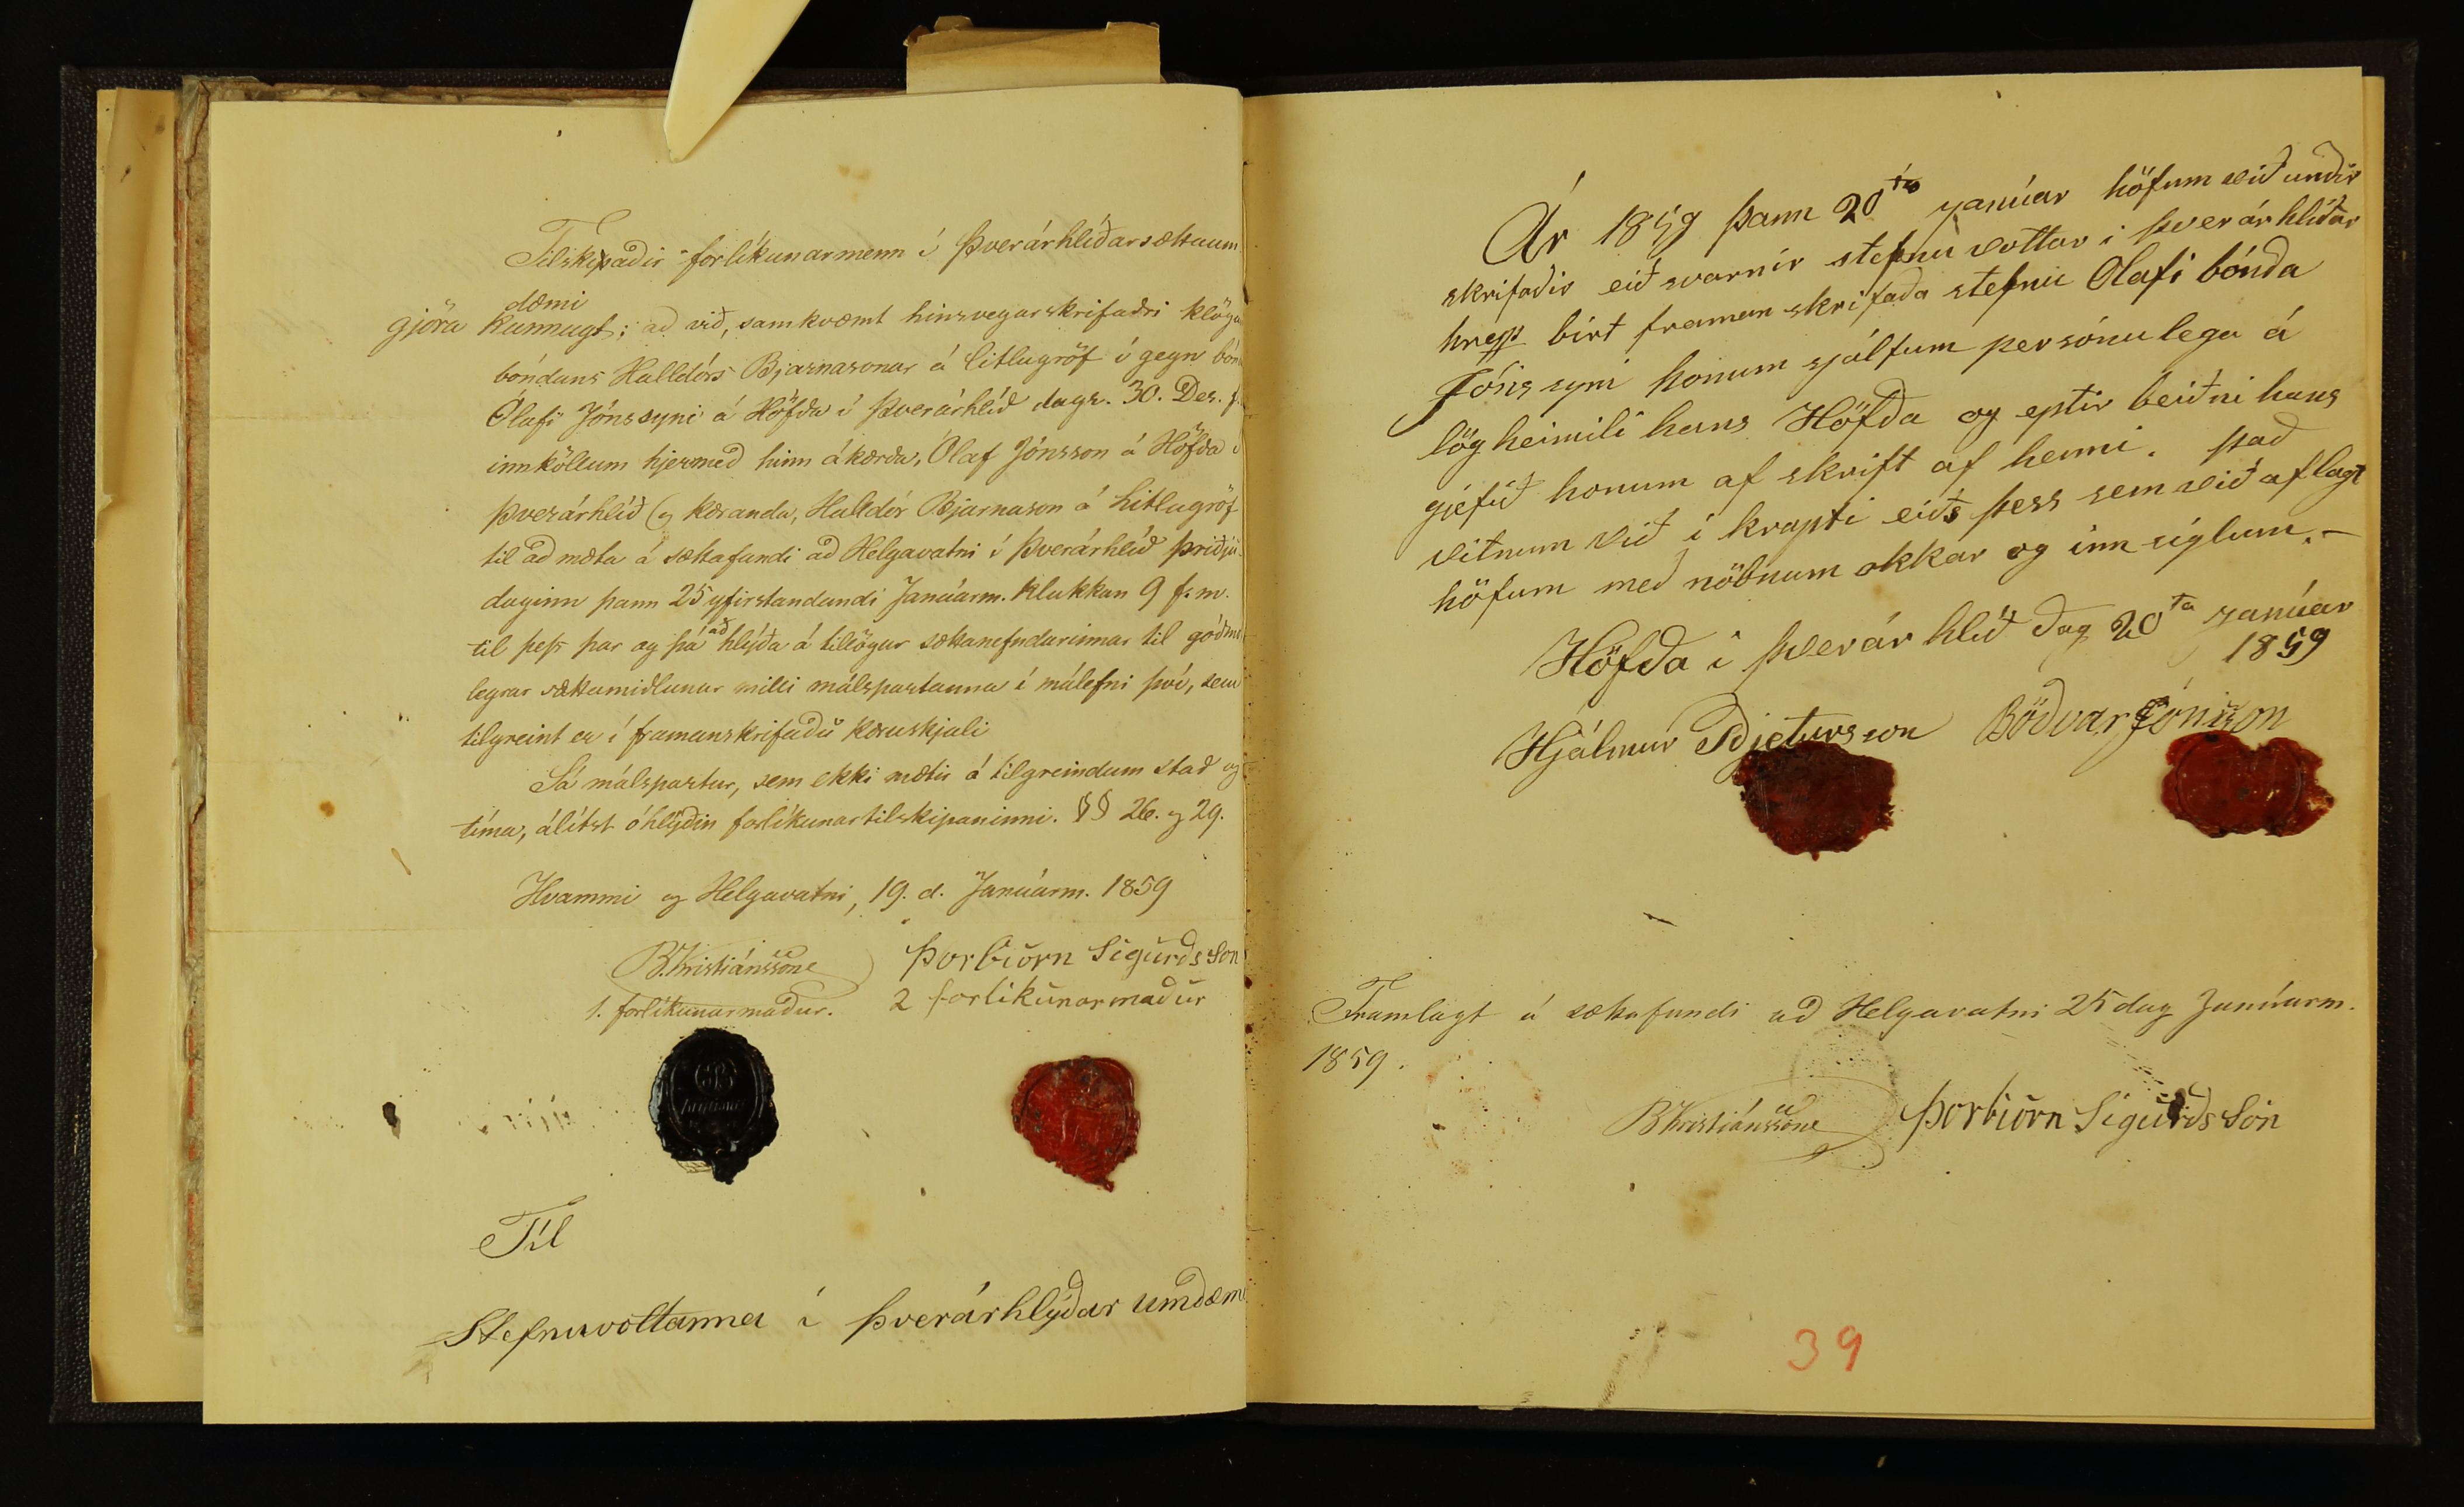 Tilskipaðir forlíkunarmenn í Þverárhlíðarsáttaum
dæmi
gjöra kunnugt; að við, samkvæmt hinsvegar skrifaðri klögu
bóndans Halldórs Bjarnasonar á Litlugröf í gegn
Ólafi Jónssyni á Höfða í Þverárhlíð dags. 30. Des. f.
innköllum hjermeð hinn ákærða, Ólaf Jónsson á Höfða í
Þverárhlíð og kæranda, Halldór Bjarnason á Litlugröf
til að mæta á sáttafundi að Helgavatni í Þverárhlíð þriðju
daginn þann 25 yfirstandandi Janúarm. klukkan 9 f.m.
til þess þar og þá að hlýða á tillögur sáttanefndarinnar til
legrar sáttamiðlunar milli málspartanna í málefni því, sem
tilgreint er í framanskrifuðu kæruskjali
Sá málspartur, sem ekki mætir á tilgreindum stað og
tíma, álítst óhlýðin forlíkunartilskipaninni. §§ 26. og 29.
Hvammi og Helgavatni, 19. d. Janúarm. 1859
B. Kristiánssone
Þorbiörn Sigurðsson
1. forlíkunarmaður.
2 forlikunarmaður
Til
Stefnuvottanna í Þverárhlýðar umdæmi
Ár 1859 þann 20ta janúar höfum við undir
skrifaðir eiðsvarnir stefnu vottar i þverárhlíðar
hrepp birt framan skrifaða stefnu Olafi bónda
Jónssyni honum sjálfum persónulega á
lögheimili hans Höfða og eptir beiðni hans
gjefið honum af skrift af henni. það
vitnum við i krapti eiðs þess sem við aflagt
höfum með nöbnum okkar og innsiglum.-
Höfða i þverár hlið dag 20ta janúar
1859
Hjálmur Pjetursson Böðvar Jónsson
Framlagt á sáttafundi að Helgavatni 25 dag Janúarm.
1859.
B Kristiánssone Þorbiörn Sigurðsson
39